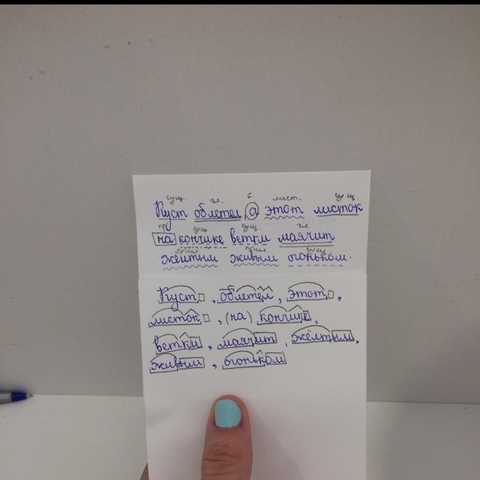 сущ. гл. с. мест. сущ.
Куст облетел, а этот листок
пр. сущ. сущ. гл.
на кончике ветки маячит
прил. прил. сущ.
жёлтым живым огоньком.
Куст, облетел, этот,
листок, (на) кончике,
ветки, маячит, жёлтым,
живым, огоньком